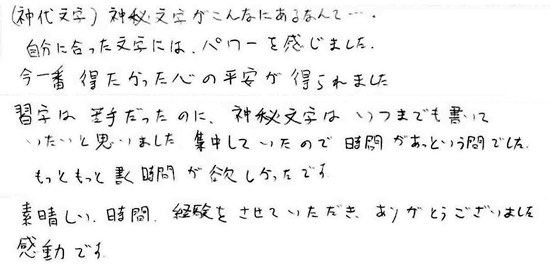 (神代文字) 神秘文字がこんなにあるなんて…。
自分に合った文字には、パワーを感じました。
今一番 得たかった心の平安が得られました
習字は苦手だったのに、神秘文字は いつまでも書いて
いたいと思いました 集中していたので 時間があっという間でした。
もっともっと書く時間が欲しかったです。
素晴しい、時間、経験をさせていただき、ありがとうございました
感動です。